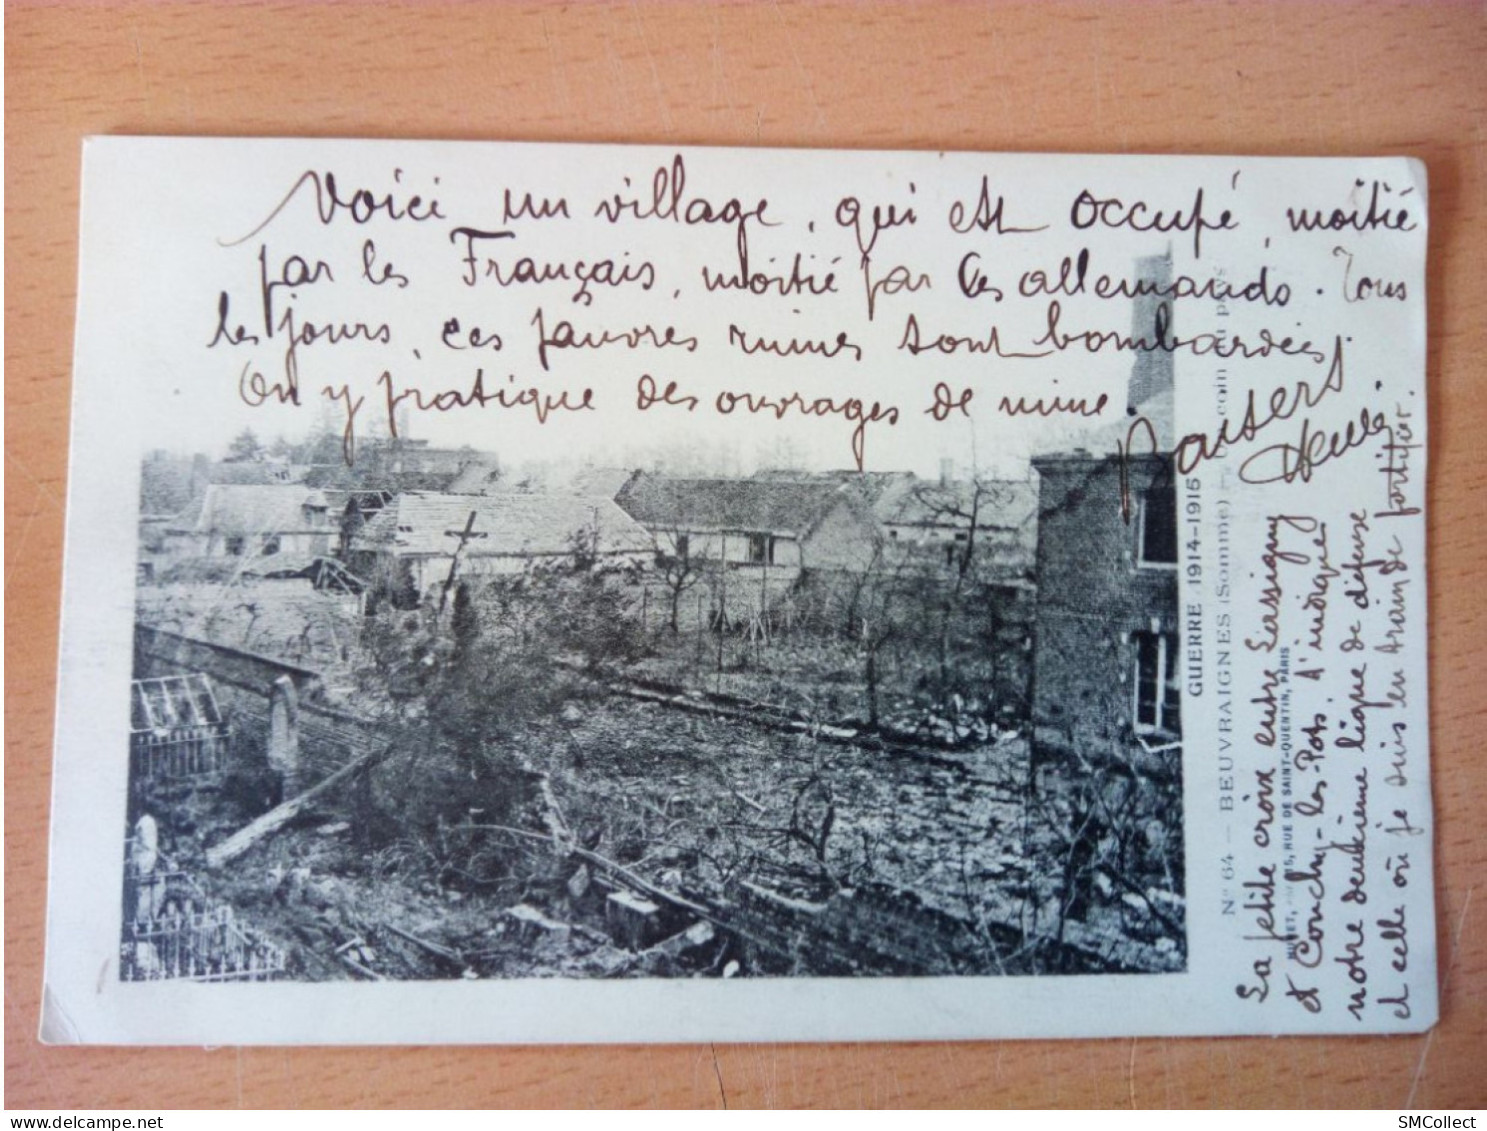 Voici un village, qui est occupé, moitié
par les Français, moitié par les allemands. Tous
les jours, ces pauvres ruines sont bombardées.
On y pratique des ouvrages de mine.
Baisers
GUERRE 1914-1915
N° 64 — BEUVRAIGNES (Somme) — Un coin du pays
RUE DE SAINT-QUENTIN, PARIS
La petite croix entre Lassigny
et Conchy-les-Pots, t'indique
notre deuxième ligne de défense
et celle où je suis en train de fortifier.
SMCollect